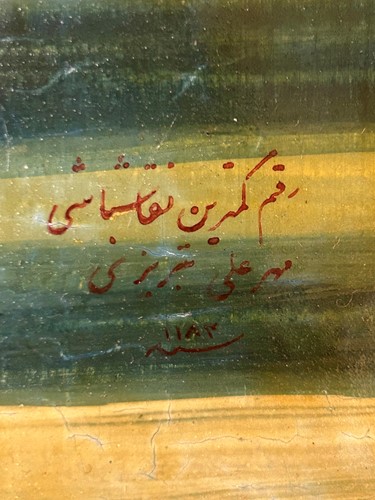 رقم کمترین نقاشباشی
مهر علی تبریزی
۱۱۸۳
سنه